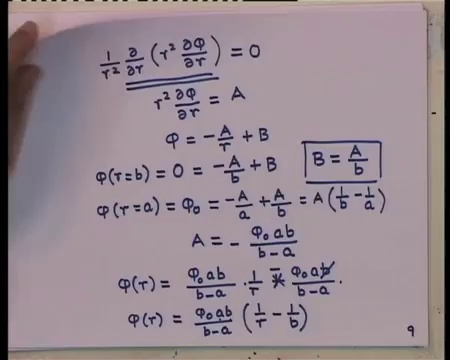 1/r² ∂/∂r (r² ∂φ/∂r) = 0
r² ∂φ/∂r = A
φ = -A/r + B
φ(r=b) = 0 = -A/b + B
B = A/b
φ(r=a) = φ₀ = -A/a + A/b = A(1/b - 1/a)
A = - φ₀ab/b-a
φ(r) = φ₀ab/b-a · 1/r - φ₀ab/b-a .
φ(r) = φ₀ab/b-a (1/r - 1/b)
9